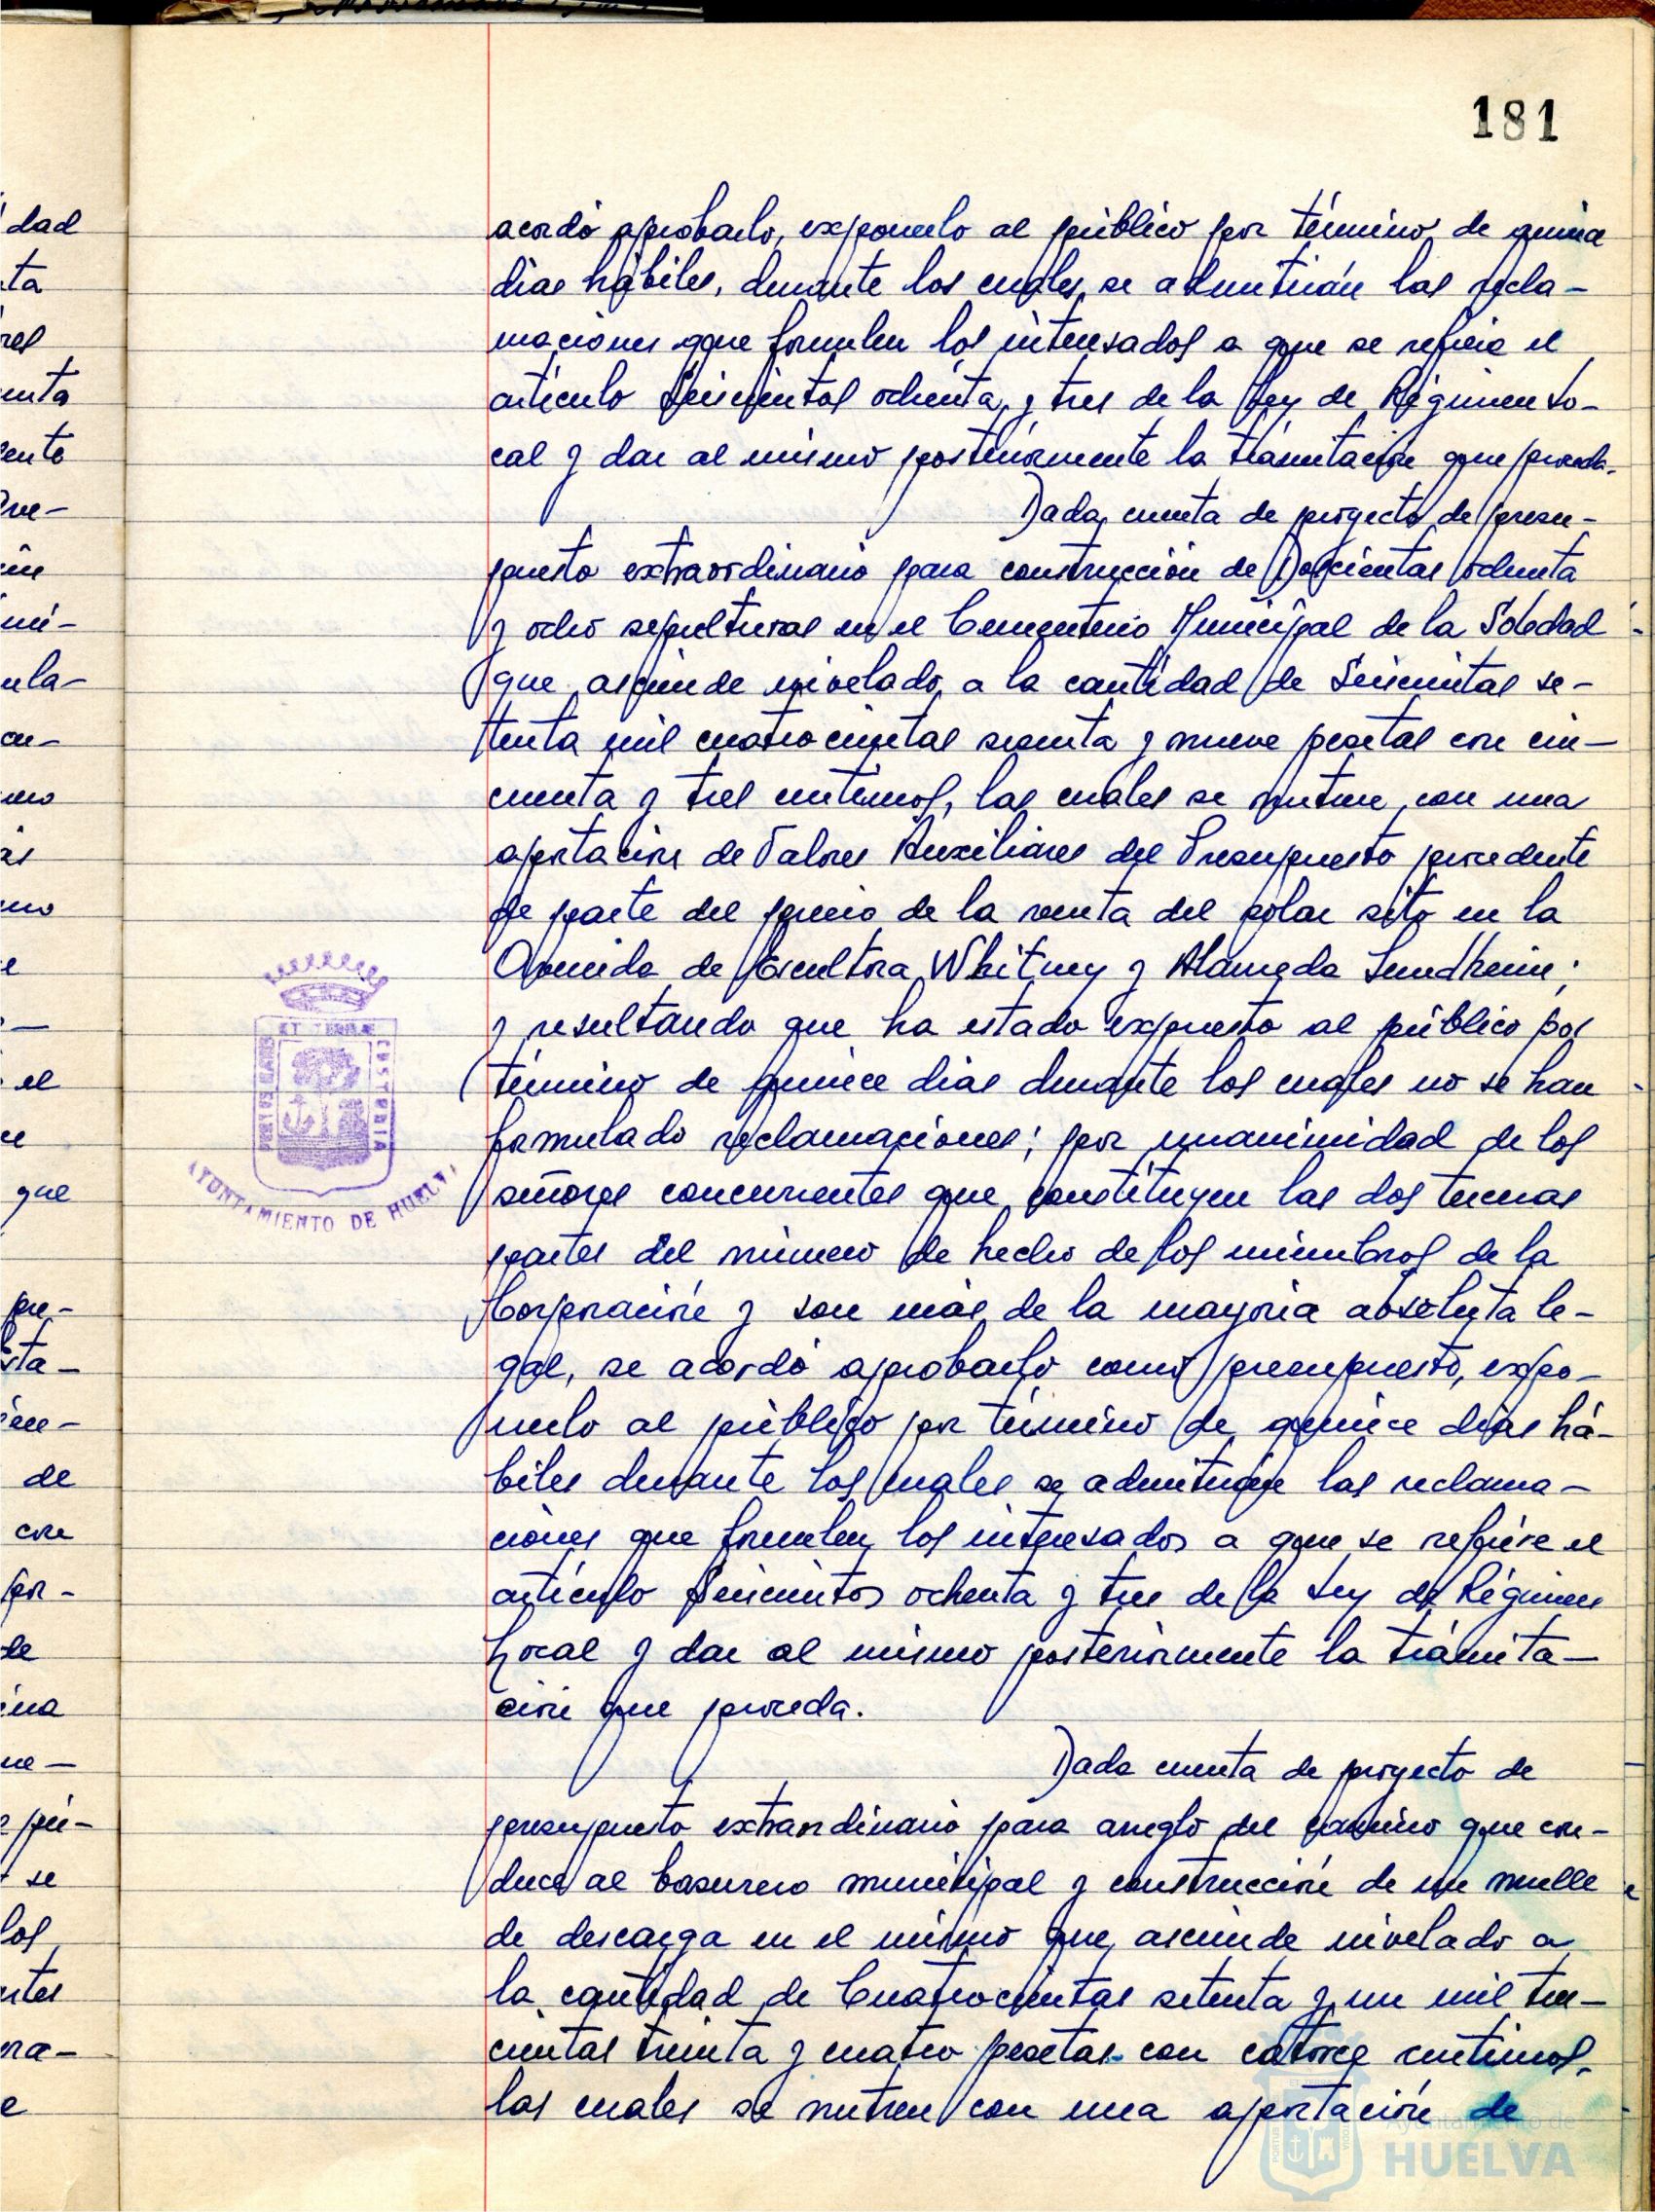 181
acordó aprobarlo, exponerlo al público por término de quince
días hábiles, durante los cuales se admitirán las recla-
maciones que formulen los interesados a que se refiere el
artículo Seiscientos ochenta y tres de la Ley de Régimen Lo-
cal y dar al mismo posteriormente la tramitación que proceda.
Dada cuenta de proyecto de presu-
puesto extraordinario para construcción de Doscientas ochenta
y ocho sepulturas en el Cementerio Municipal de la Soledad
que asciende nivelado a la cantidad de Seiscientas se-
tenta mil cuatrocientas sesenta y nueve pesetas con cin-
cuenta y tres centimos, las cuales se nutren con una
aportación de Valores Auxiliares del Presupuesto procedente
de parte del precio de la venta del solar sito en la
Avenida de Escultora Whitney y Alameda Sundheim;
y resultando que ha estado expuesto al público por
término de quince dias durante los cuales no se han
formulado reclamaciones; por unanimidad de los
señores concurrentes que constituyen las dos terceras
partes del número de hecho de los miembros de la
Corporación y son más de la mayoria absoluta le-
gal, se acordó aprobarlo como presupuesto, expo-
nerlo al público por término de quince dias há-
biles durante los cuales se admitirán las reclama-
ciones que formulen los interesados a que se refiere el
artículo Seiscientos ochenta y tres de la Ley de Régimen
Local y dar al mismo posteriormente la tramita-
ción que proceda.
Dada cuenta de proyecto de
presupuesto extraordinario para arreglo del camino que con-
duce al basurero municipal y construcción de un muelle
de descarga en el mismo que asciende nivelado a
la cantidad de Cuatrocientas setenta y un mil tres-
cientas treinta y cuatro pesetas con catorce centimos,
las cuales se nutren con una aportación de
AYUNTAMIENTO DE HUELVA
Ayuntamiento de
HUELVA